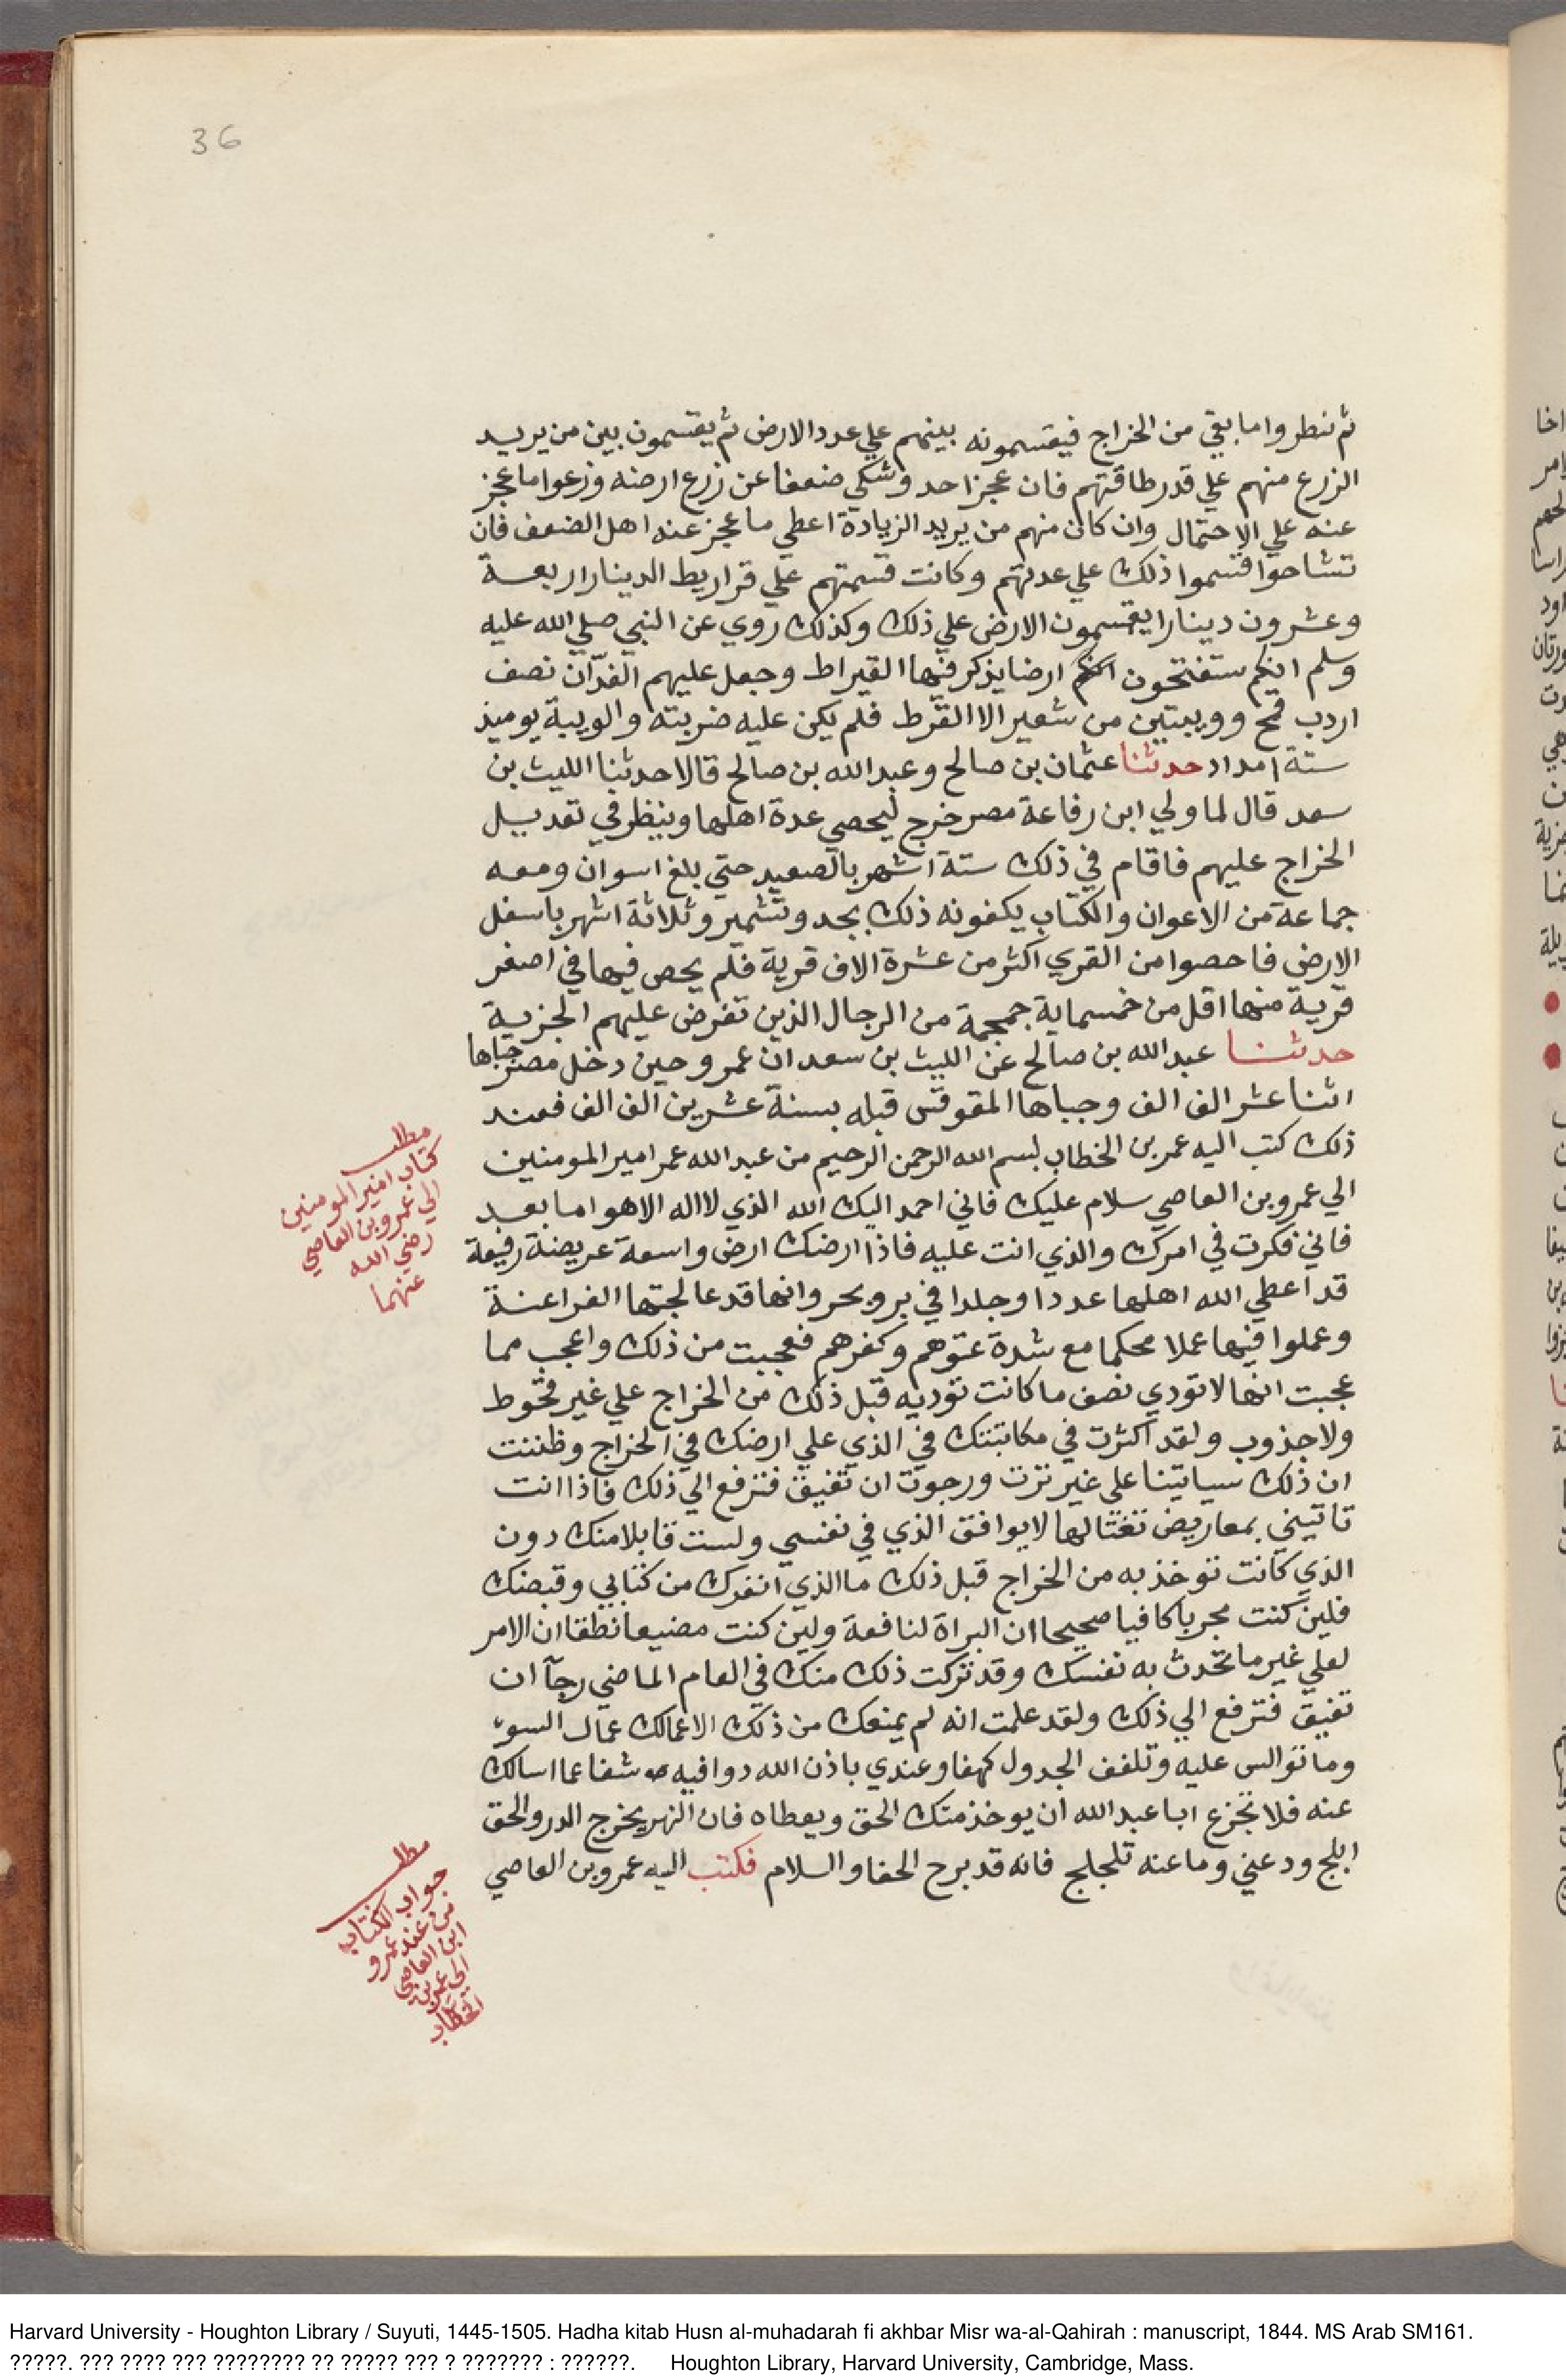 36
ثم نطروا ما بقي من الخراج فيقسمونه بينهم علي عدد الارض ثم يقسمون بين من يريد
الزرع منهم علي قدر طاقتهم فان عجز احد وشكي ضعفا عن زرع ارضه وزعوا ما عجز
عنه علي الاحتمال وان كان منهم من يريد الزيادة اعطي ما عجز عنه اهل الضعف فان
تشاحوا قسموا ذلك علي عدتهم وكانت قسمتهم علي قراريط الدينار اربعة
وعشرون دينارا يقسمون الارض علي ذلك وكذلك روي عن النبي صلي الله عليه
وسلم انكم ستفتحون ارضا يذكر فيها القيراط وجعل عليهم الفدّان نصف
اردب قمح وويبتين من شعير الا القرط فلم يكن عليه ضريبته والويبة يوميذ
ستة امداد حدثنا عثمان بن صالح وعبد الله بن صالح قالا حدثنا الليث بن
سعد قال لما ولي ابن رفاعة مصر خرج ليحصي عدة اهلها وينظر في تعديل
الخراج عليهم فاقام في ذلك ستة اشهر بالصعيد حتي بلغ اسوان ومعه
جماعة من الاعوان والكتاب يكفونه ذلك بجد وتشمير وثلاثة اشهر باسفل
الارض فاحصوا من القري اكثر من عشرة الاف قرية فلم يحص فيها في اصغر
قرية منها اقل من خمسماية جمجمة من الرجال الذين تفرض عليهم الجزية
حدثنا عبد الله بن صالح عن الليث بن سعد ان عمرو حين دخل مصر جباها
اثنا عشر الف الف وجباها المقوقس قبله بسنة عشرين الف الف فعند
ذلك كتب اليه عمر بن الخطاب بسم الله الرحمن الرحيم من عبد الله عمر امير المومنين
الي عمرو بن العاصي سلام عليك فاني احمد اليك الله الذي لا اله الا هو اما بعد
فاني فكرت في امرك والذي انت عليه فاذا ارضك ارض واسعة عريضة رفيعة
قد اعطي الله اهلها عددا وجلدا في بر وبحر وانها قد عالجتها الفراعنة
وعملوا فيها عملا محكما مع شدة عتوهم وكفرهم فعجبت من ذلك واعجب مما
عجبت انها لا تودي نصف ما كانت توديه قبل ذلك من الخراج علي غير قحوط
ولا جذوب ولقد اكثرت في مكاتبتك في الذي علي ارضك في الخراج وظننت
ان ذلك سياتينا علي غير نزت ورجوت ان تفيق فترفع الي ذلك فاذا انت
تاتيني بمعاريض تغتالها لا يوافق الذي في نفسي ولست قابلا منك دون
الذي كانت توخذ به من الخراج قبل ذلك ما الذي انفرك من كتابي وقبضك
فلين كنت مجربا كافيا صحيحا ان البراة لنافعة ولين كنت مضيعا نطفا ان الامر
لعلي غير ما تحدث به نفسك وقد تركت ذلك منك في العام الماضي رجآ ان
تفيق فترفع الي ذلك ولقد علمت انه لم يمنعك من ذلك الا عمالك عمال السوء
وما توالس عليه وتلفف الجدول كهفا وعندي باذن الله دوا فيه شفا عما اسالك
عنه فلا تجزع ابا عبد الله ان يوخذ منك الحق ويعطاه فان النهر يخرج الدر والحق
ابلج ودعني وما عنه تلجلج فانه قد برح الحفا والسلام فكتب اليه عمرو بن العاصي
مطلب
كتاب امير المومنين
الي عمرو بن العاصي
رضي الله
عنهما
مطلب
جواب الكتاب
من عند عمرو
ابن العاصي
الي عمر بن
الخطاب
Harvard University - Houghton Library / Suyuti, 1445-1505. Hadha kitab Husn al-muhadarah fi akhbar Misr wa-al-Qahirah : manuscript, 1844. MS Arab SM161.
?????. ??? ???? ??? ???????? ?? ????? ??? ? ??????? : ??????. Houghton Library, Harvard University, Cambridge, Mass.